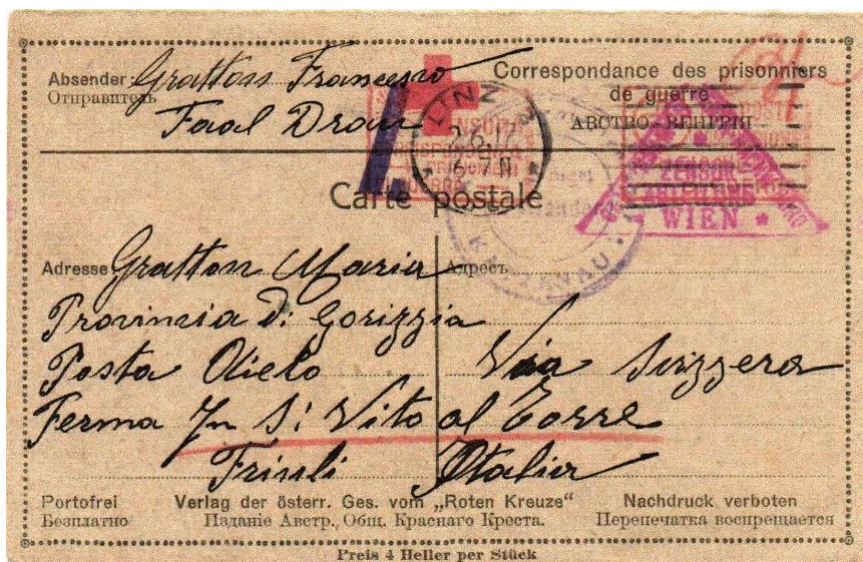 Absender: Gratton Francesco
Отправитель
Correspondance des prisonniers
de guerre
АВСТРО-ВЕНГРІЯ
LINZ 2
Carte postale
ZENSUR
ABTEILUNG
WIEN *
Adresse Gratton Maria
Адресъ
Provinzia di Gorizzia
Posta Aielo
Via Svizzera
Ferma In S: Vito al Torre
Friuli Italia
Portofrei
Безплатно
Verlag der österr. Ges. vom „Roten Kreuze“
Изданіе Австр. Общ. Краснаго Креста.
Nachdruck verboten
Перепечатка воспрещается
Preis 4 Heller per Stück